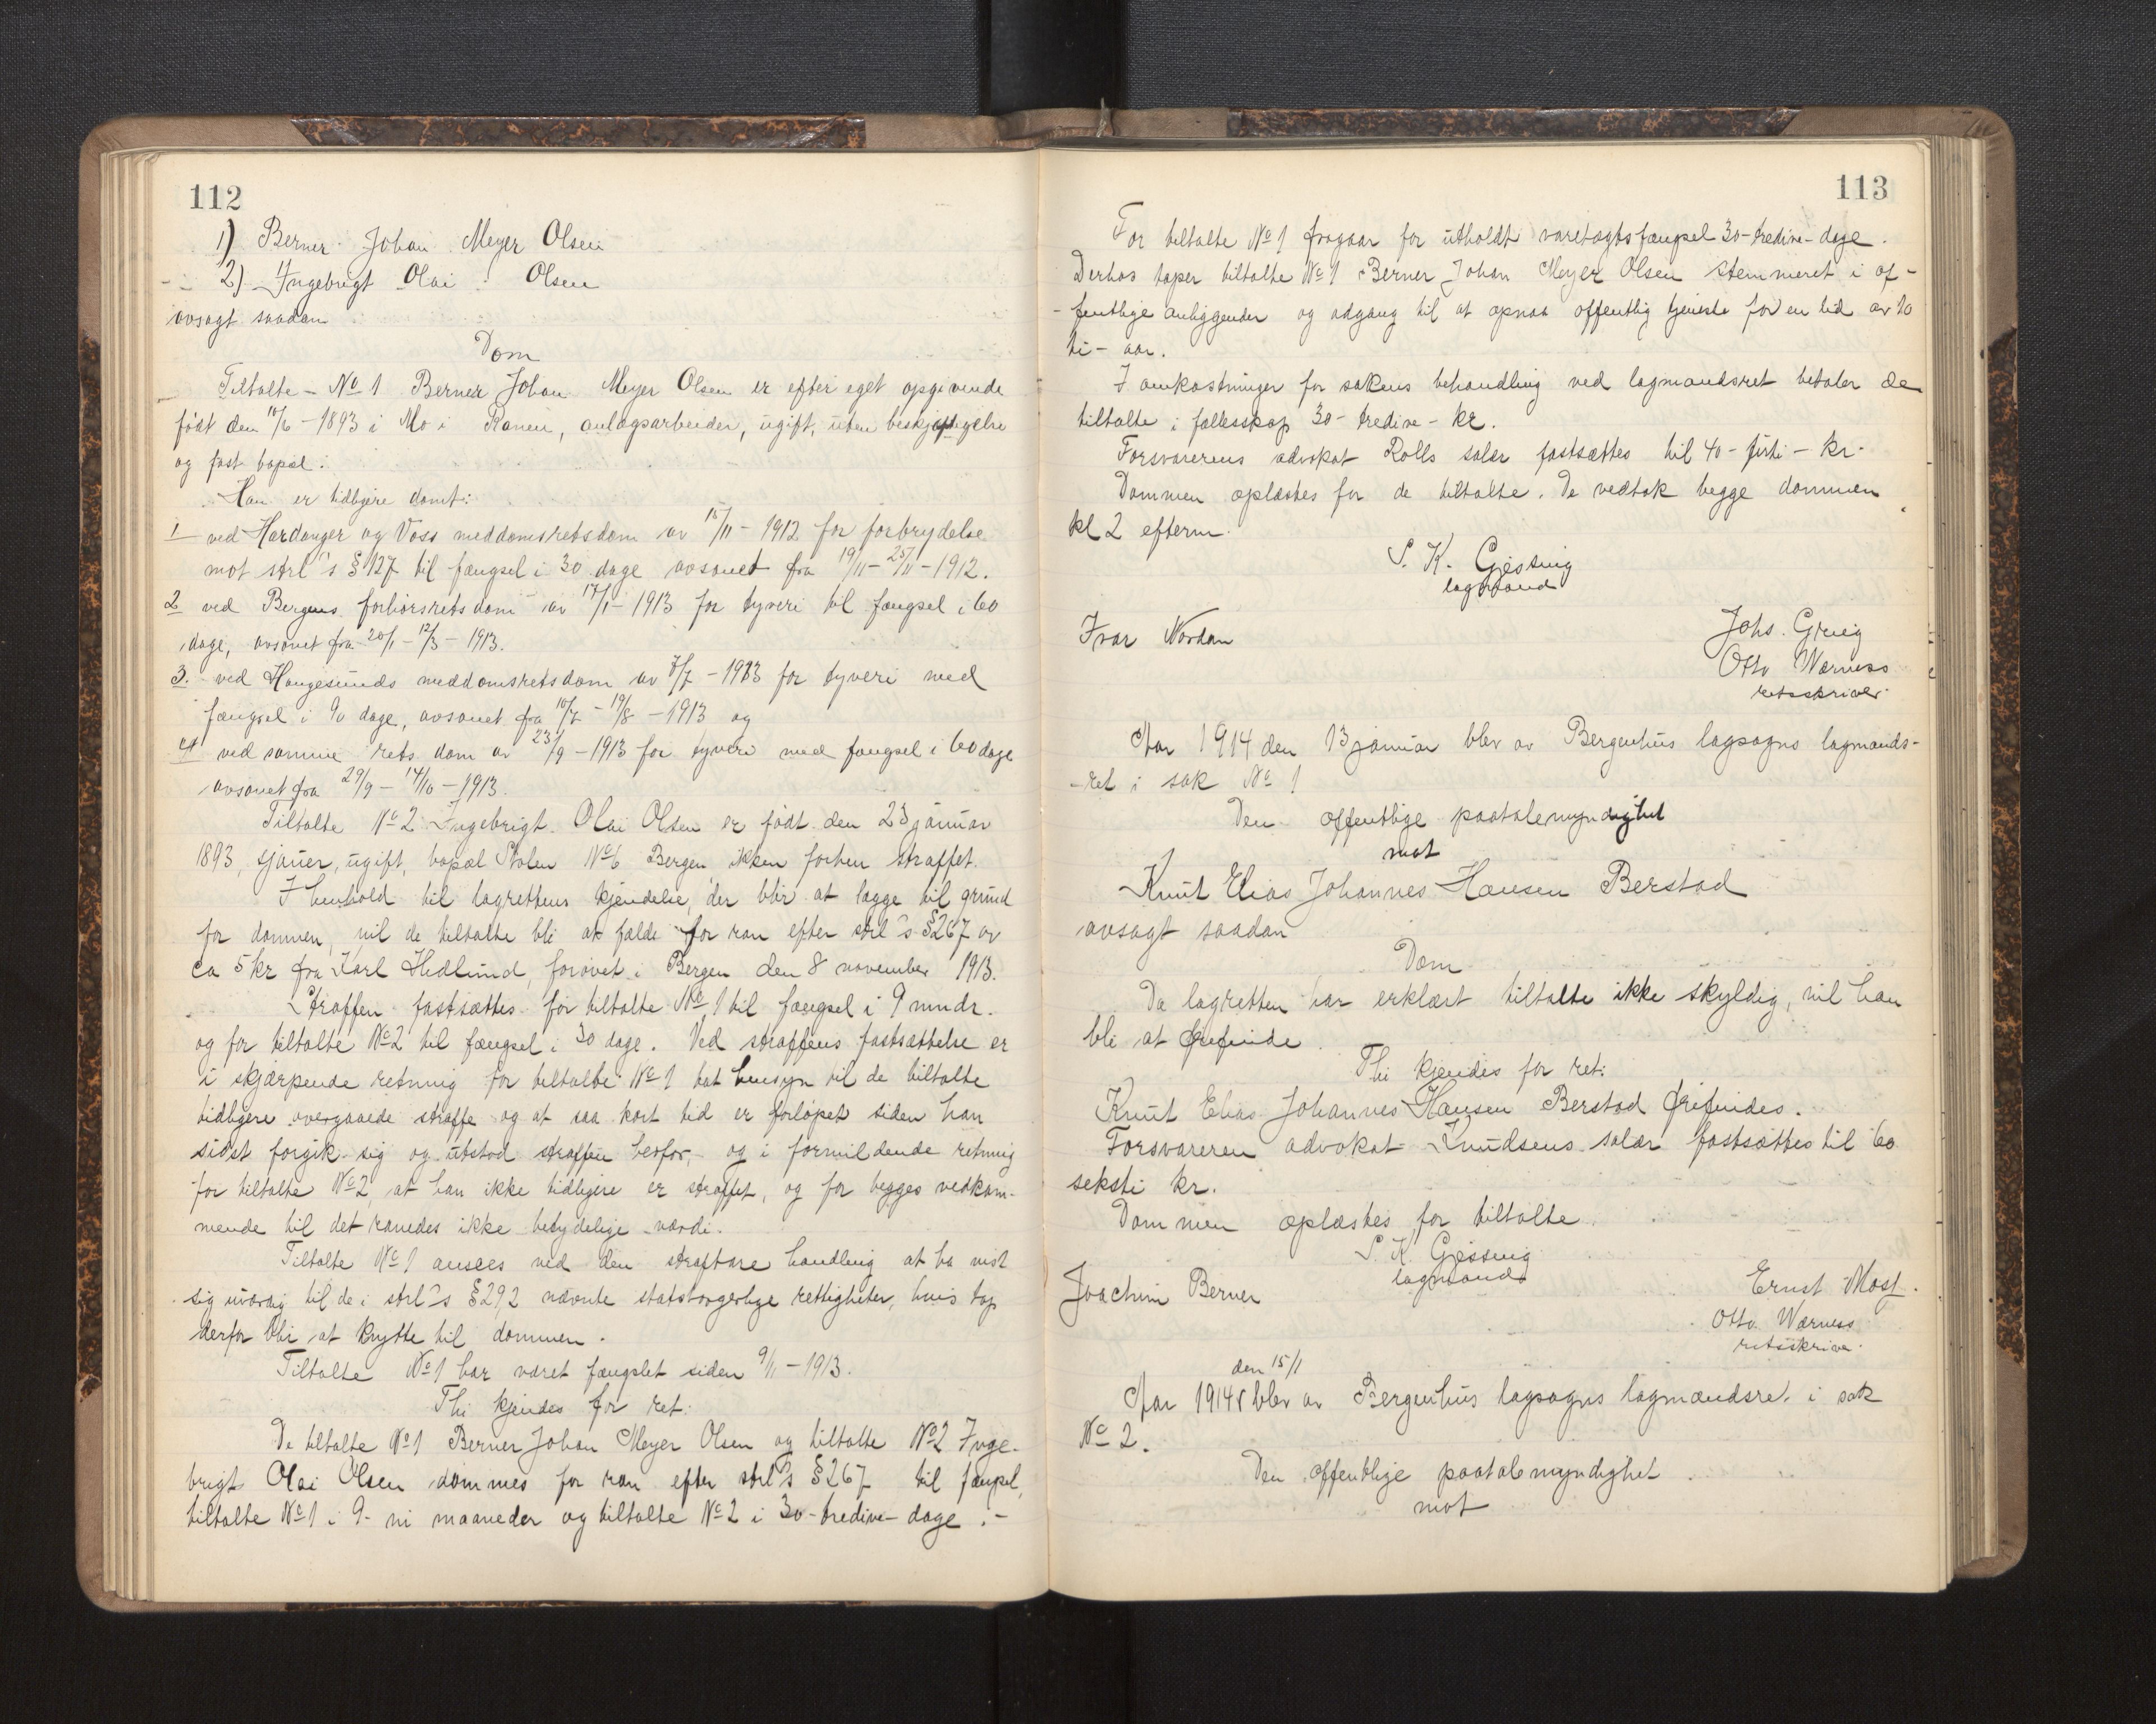 112
1) Berner Johan Meyer Olsen
2) Ingebrigt Olai Olsen
avsagt saadan
Dom
Tiltalte No 1 Berner Johan Meyer Olsen er efter eget opgivende
født den 10/6 - 1893 i Mo i Ranen, anlægsarbeider, ugift, uten beskjæftigelse
og fast bopæl.
Han er tidligere dømt:
1 ved Hardanger og Voss meddomsretsdom av 15/11 - 1912 for forbrydelse
mot strl's § 127 til fængsel i 30 dage avsonet fra 19/11 - 25/11 - 1912.
2 ved Bergens forhørsretsdom av 17/1 - 1913 for tyveri til fængsel i 60
dage, avsonet fra 20/1 - 12/3 - 1913.
3. ved Haugesunds meddomsretsdom av 8/7 - 1913 for tyveri med
fængsel i 90 dage, avsonet fra 10/7 - 19/8 - 1913 og
4 ved samme rets dom av 23/9 - 1913 for tyveri med fængsel i 60 dage
avsonet fra 29/9 - 14/10 - 1913.
Tiltalte No 2 Ingebrigt Olai Olsen er født den 23 januar
1893, sjauer, ugift, bopæl Stølen No 6 Bergen, ikke forhen straffet.
I henhold til lagrettens kjendelse, der blir at lægge til grund
for dommen, vil de tiltalte bli at fælde for ran efter strl's § 267 av
ca 5 kr fra Karl Hedlund, forøvet i Bergen den 8 november 1913.
Straffen fastsættes for tiltalte No 1 til fængsel i 9 mndr.
og for tiltalte No 2 til fængsel i 30 dage. Ved straffens fastsættelse er
i skjærpende retning for tiltalte No 1 tat hensyn til de tiltalte
tidligere overgaaede straffe og at saa kort tid er forløpet siden han
sidst forgik sig og utstod straffen herfor, og i formildende retning
for tiltalte No 2, at han ikke tidligere er straffet, og for begges vedkom-
mende til det ranedes ikke betydelige værdi.
Tiltalte No 1 ansees ved den straffbare handling at ha vist
sig uværdig til de i strl's § 292 nævnte statsborgerlige rettigheter, hvis tap
derfor bli at knytte til dommen.
Tiltalte No 1 har været fængslet siden 9/11 - 1913.
Thi kjendes for ret:
De tiltalte No 1 Berner Johan Meyer Olsen og tiltalte No 2 Inge-
brigt Olai Olsen dømmes for ran efter strl's § 267 til fængsel,
tiltalte No 1 i 9 - ni maaneder og tiltalte No 2 i 30 - tredive - dage. -
113
For tiltalte No 1 fragaar for utholdt varetægtsfængsel 30 - tredive - dage.
Derhos taper tiltalte No 1 Berner Johan Meyer Olsen stemmeret i of-
-fentlige anliggender og adgang til at opnaa offentlig tjeneste for en tid av 10
ti - aar.
I omkostninger for sakens behandling ved lagmandsret betaler de
tiltalte i fællesskap 30 - tredive - kr.
Forsvarerens advokat Rolls salær fastsættes til 40 - firti - kr.
Dommen oplæstes for de tiltalte. De vedtok begge dommen
kl 2 efterm.
S. K. Gjessing
lagmand
Ivar Nordan
Johs. Grieg
Otto Wærness
retsskriver.
Aar 1914 den 13 januar blev av Bergenhus lagsogns lagmands-
-ret i sak No 1
Den offentlige paatalemyndighet
mot
Knut Elias Johannes Hansen Berstad
avsagt saadan
Dom
Da lagretten har erklært tiltalte ikke skyldig, vil han
bli at frifinde.
Thi kjendes for ret:
Knut Elias Johannes Hansen Berstad frifindes.
Forsvareren advokat Knudsens salær fastsættes til 60
seksti kr.
Dommen oplæstes for tiltalte.
S. K. Gjessing
lagmand
Joachim Berner
Ernst Most.
Otto Wærness
retsskriver.
den 15/1
Aar 1914 blev av Bergenhus lagsogns lagmandsret i sak
No 2.
Den offentlige paatalemyndighet
mot